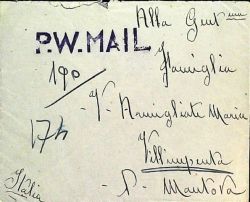 Alla Gent.ma
P.W. MAIL
Famiglia
190
V. Armigliate Maria
174
Villimpenta
P. Mantova
Italia